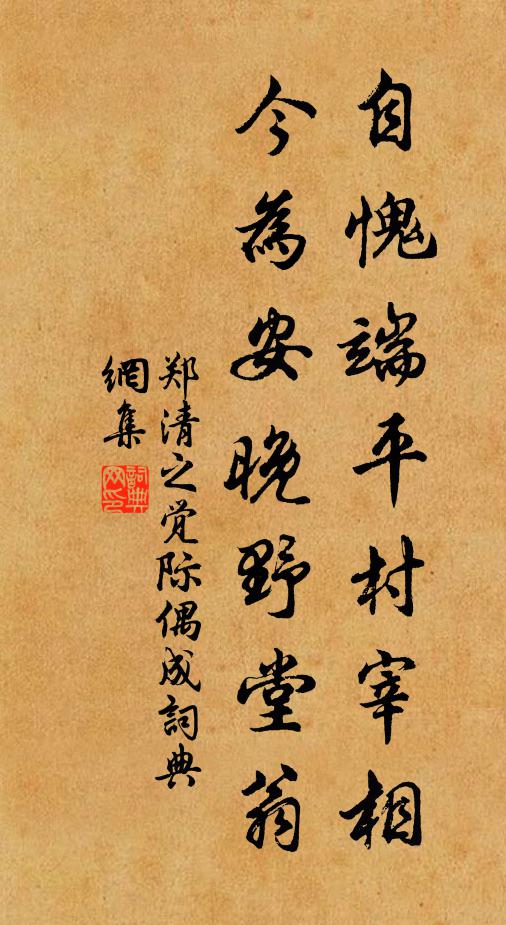 自愧端平村宰相
今為安晚野堂翁
郑清之觉际偶成詞典
網集
詞典
网印